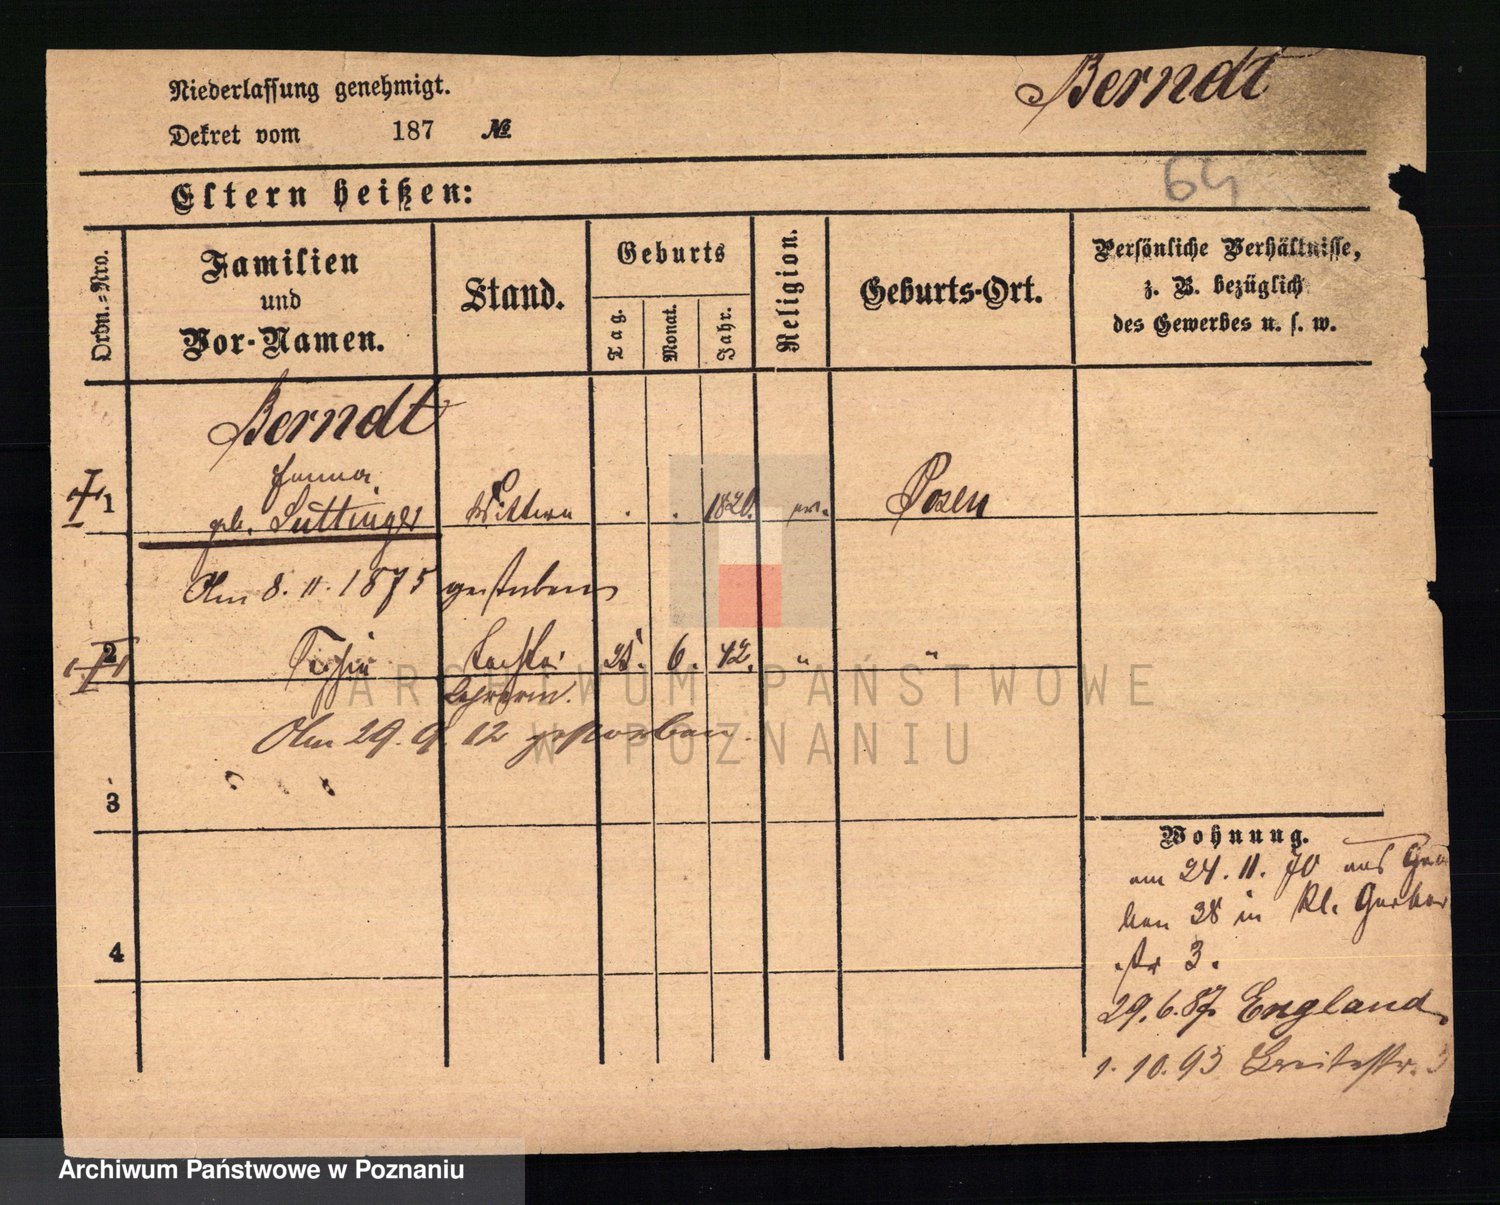 Niederlassung genehmigt.
Berndt
Dekret vom 187 №
64
Eltern heißen:
Ordn.-Nro.
Familien
und
Vor-Namen.
Stand.
Geburts
Tag.
Monat.
Jahr.
Religion.
Geburts-Ort.
Persönliche Verhältnisse,
z. B. bezüglich
des Gewerbes u. s. w.
Berndt
1
geb. Luttinger Wittwe 1820. Posen
Am 8. 11. 1875 gestorben
2 Tochter 6. 42. " "
Lehrerin.
Am 29. 9. 12 gestorben.
3
Wohnung.
am 24. 11. 70 aus
ben 38 in Kl. Gerber
str 3.
4
29. 6. 87. England
1. 10. 93 Breitestr. 3
ARCHIWUM PAŃSTWOWE
W POZNANIU
Archiwum Państwowe w Poznaniu